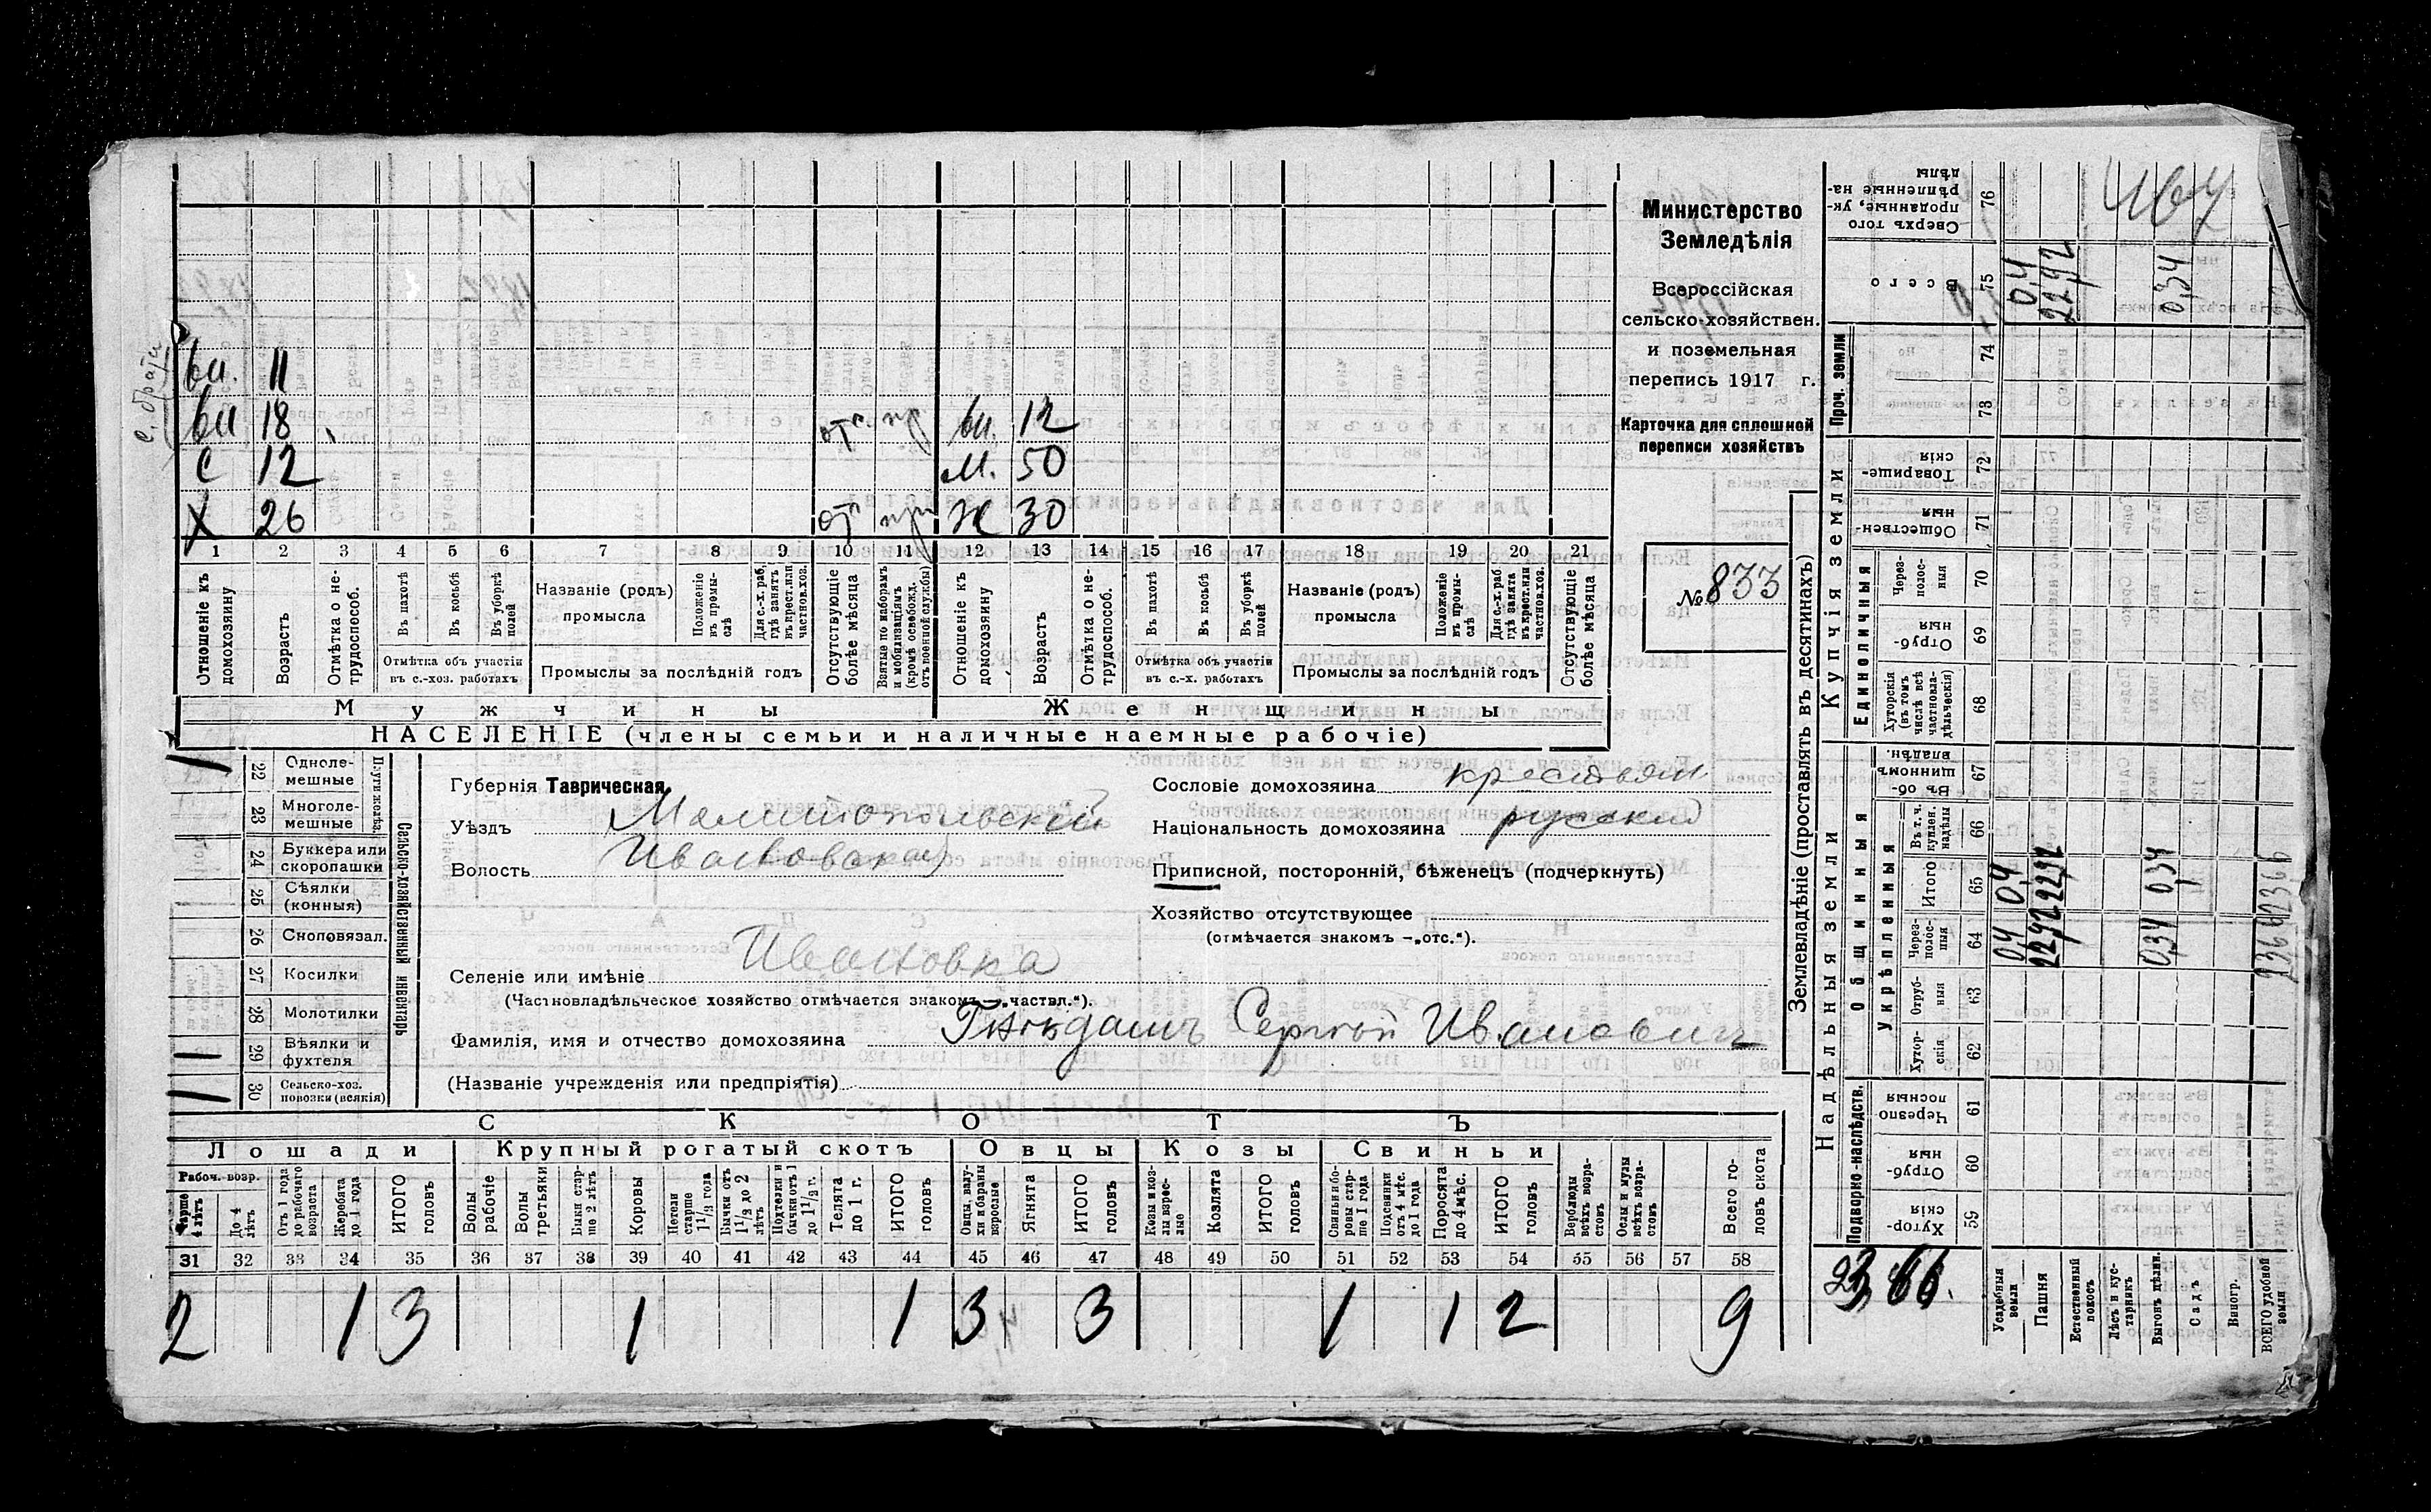 с. брати
вн. 11
вн 18 отс. пр вн. 12
с 12 м. 50
х 26 отс пр ж 30
1 2 3 4 5 6 7 8 9 10 11 12 13 14 15 16 17 18 19 20 21
Отношеніе къ домохозяину
Возрастъ
Отмѣтка о не-трудоспособ.
Въ пахотѣ
Въ косьбѣ
Въ уборкѣ полей
Отмѣтка объ участіи
въ с.-хоз. работахъ
Названіе (родъ)
промысла
Положеніе въ промы-слѣ
Для с.-х. раб. гдѣ занятъ въ крест. или частнов. хоз.
Промыслы за послѣдній годъ
Отсутствующіе болѣе мѣсяца
Взятые по наборамъ и мобилизаціямъ (кромѣ освобожд. отъ военной службы)
Отношеніе къ домохозяину
Возрастъ
Отмѣтка о не-трудоспособ.
Въ пахотѣ
Въ косьбѣ
Въ уборкѣ полей
Отмѣтка объ участіи
въ с.-х. работахъ
Названіе (родъ)
промысла
Положеніе въ промы-слѣ
Для с.-х раб. гдѣ занята въ крест. или частнов. хоз.
Промыслы за послѣдній годъ
Отсутствующіе болѣе мѣсяца
Мужчины Женщины
НАСЕЛЕНІЕ (члены семьи и наличные наемные рабочіе)
Министерство
Земледѣлія
Всероссійская
сельско-хозяйствен.
и поземельная
перепись 1917 г.
Карточка для сплошной
переписи хозяйствъ
№ 833
22 Одноле-
мешные
23 Многоле-
мешные
24 Буккера или
скоропашки
25 Сѣялки
(конныя)
26 Сноповязал.
27 Косилки
28 Молотилки
29 Вѣялки и
фухтеля
30 Сельско-хоз.
повозки (всякія)
Плуги желѣз.
Сельско-хозяйственный инвентарь
Губернія Таврическая.
Уѣздъ Мелитопольский
Волость Ивановская
Селеніе или имѣніе Ивановка
(Частновладѣльческое хозяйство отмѣчается знакомъ —„частвл.“).
Фамилія, имя и отчество домохозяина Сергей Иванович
(Названіе учрежденія или предпріятія)
Сословіе домохозяина крестьян
Національность домохозяина русский
Приписной, посторонній, бѣженецъ (подчеркнуть)
Хозяйство отсутствующее
(отмѣчается знакомъ —„отс.“).
СКОТЪ
Лошади Крупный рогатый скотъ Овцы Козы Свиньи
Рабоч. возр.
Старше 4 лѣтъ
До 4 лѣтъ
Отъ 1 года до рабочаго возраста
Жеребята до 1 года
ИТОГО головъ
Волы рабочіе
Волы третьяки
Быки стар-ше 2 лѣтъ
Коровы
Нетели старше 1 1/2 года
Бычки отъ 1 1/2 до 2 лѣтъ
Подтелки и бычки отъ 1 до 1 1/2 г.
Телята до 1 г.
ИТОГО головъ
Овцы, валу-хи и бараны взрослые
Ягнята
ИТОГО головъ
Козы и коз-лы взрос-лые
Козлята
ИТОГО головъ
Свиньи и бо-ровы стар-ше 1 года
Подсвинки отъ 4 мѣс. до 1 года
Поросята до 4 мѣс.
ИТОГО головъ
Верблюды всѣхъ возра-стовъ
Ослы и мулы всѣхъ возра-стовъ
Всего го-ловъ скота
31 32 33 34 35 36 37 38 39 40 41 42 43 44 45 46 47 48 49 50 51 52 53 54 55 56 57 58
2 1 3 1 1 3 3 1 1 2 9
Землевладѣніе (проставлять въ десятинахъ)
Надѣльныя земли Купчія земли Проч. земли
Подворно-наслѣдств. Общинныя Единоличныя
Укрѣпленныя
Сверхъ того проданные, ук-рѣпленные на-дѣлы 76
Всего 75 0,4 22,92 0,34
74
73
Товарище-скія 72
Обществен-ныя 71
Через-полос-ныя 70
Отруб-ныя 69
Хуторскія (въ томъ числѣ всѣ частновла-дѣльческія) 68
Въ об-щинномъ владѣн. 67
Въ т. ч. куплен. надѣлы 66
Итого 65 0,4 22,92 0,34 2366
Через-полос-ныя 64 0,4 22,92 0,34 2366
Отруб-ныя 63
Хутор-скія 62
Черезпо лосныя 61
Отруб-ныя 60
Хутор-скія 59
Усадебныя земли
Пашня
Естественный покосъ
Лѣсъ и кус-тарникъ
Выгонъ дѣлин.
Садъ
Виногр.
ВСЕГО удобной земли